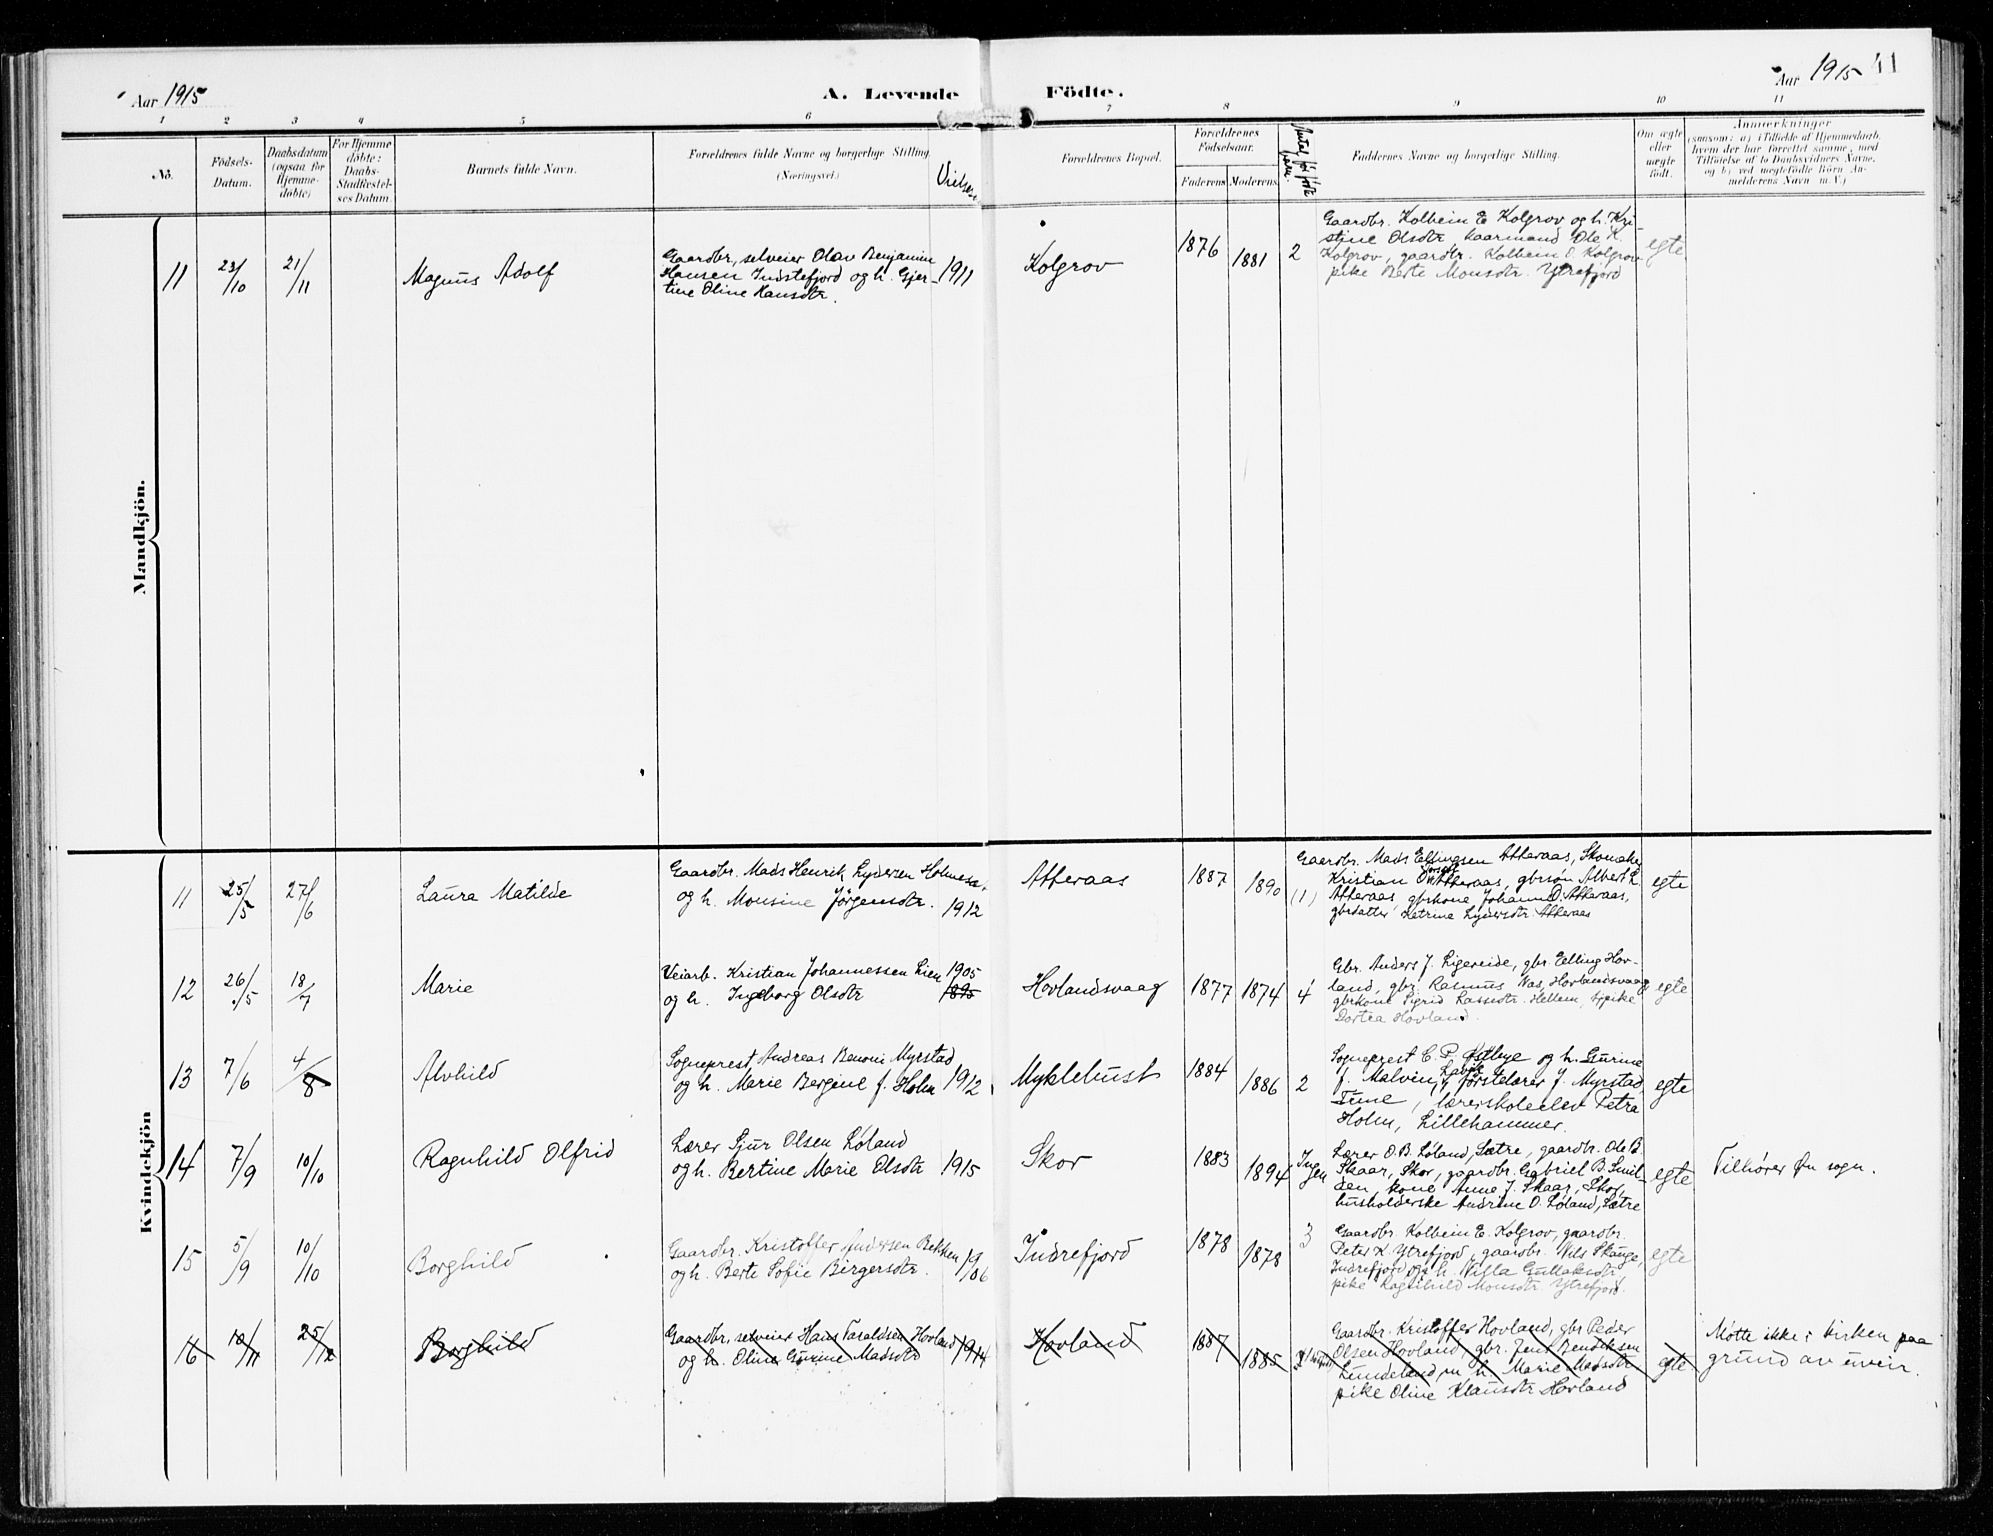 Aar 1915
A. Levende Födte.
Aar 1915
41
1 2 3 4 5 6 7 8 9 10 11
No.
Födsels-
Datum.
Daabsdatum
(ogsaa for
Hjemme-
döbte)
For Hjemme
döbte:
Daabs-
Stadfæstel-
ses Datum.
Barnets fulde Navn.
Forældrenes fulde Navne og borgerlige Stilling
(Næringsvei.)
Forældrenes Bopæl.
Forældrenes
Födselsaar.
Faderens Moderens
Faddernes Navne og borgerlige Stilling.
Om ægte
eller
uægte
födt.
Anmærkninger
(saasom: a) i Tilfælde af Hjemmedaab,
hvem der har forrettet samme, med
Tilföielse af to Daabsvidners Navne,
og b) ved uegtefödte Börn An-
melderens Navn m. V.)
Mandkjön.
11
23/10
21/11
Magnus Adolf
Gaardbr, selveier Olav Benjamin
Hansen Indstefjord og h. Gjer-
tine Oline Hansdtr.
1911
Kolgrov
1876
1881
2
Gaardbr. Kolbein E Kolgrov og h. Kri-
stine Olsdtr, kaarmand Ole K.
Kolgrov, gaardbr. Kolbein O. Kolgrov
pike Berte Monsdtr. Ytrefjord
egte
Kvindekjön
11
25/5
27/6
Laura Matilde
Gaardbr. Mads Henrik Lydersen
og h. Monsine Jørgensdtr.
1912
Atteraas
1887
1890
(1)
Gaardbr. Mads Ellingsen Atteraas, Skomaker
Kristian Atteraas, gbrsøn Albert L.
Atteraas, gbrkone Johanne D. Atteraas,
gbrdatter Katrine Lydersdtr Atteraas
egte
12
26/5
18/7
Marie
Veiarb. Kristian Johannessen Lien
og h. Ingeborg Olsdtr
1905
1895
Hovlandsvaag
1877
1874
4
Gbr. Anders J. Ligereide, gbr. Elling Hov-
land, gbr. Rasmus Nas, Hovlandsvaag
gbrkone Sigrid Lassedtr. Hellem, tjpike
Dortea Hovland.
egte
13
7/6
4/8
Alvhild
Sogneprest Andreas Benoni Myrstad
og h. Marie Bergine f. Holm
1912
Myklebust
1884
1886
2
Sogneprest C. P. Østbye og h. Gurine
f. Malvin, Lavik, førstelærer J. Myrstad,
Tune, lærerskoleelev Petra
Holm, Lillehammer.
egte
14
7/9
10/10
Ragnhild Olfrid
Lærer Sjur Olsen Loland
og h. Bertine Marie Olsdtr
1915
Skor
1883
1894
Ingen
Lærer O.B. Løland, Sætre, gaardbr. Ole B.
Skaar, Skor, gaardbr. Gabriel B. Smil-
den, kone Anne J. Skaar, Skor,
husholderske Andrine O. Løland, Sætre
egte
Tilhører Øn sogn.
15
5/9
10/10
Borghild
Gaardbr. Kristoffer Andersen Bekken
og h. Berte Sofie Birgersdtr.
19/06
Indrefjord
1878
1878
3
Gaardbr. Kolbein E. Kolgrov, gaardbr.
Peter K. Ytrefjord, gaardbr. Nils Skauge,
Indrefjord og h. Villa Gullaksdtr
pike Ragnhild Monsdtr. Ytrefjord.
egte
16
10/11
25/12
Borghild
Gaardbr, selveier Hans Taraldsen Hovland
og h. Oline Gurine Madsdtr
1914
Hovland
1887
1885
Gaardbr. Kristoffer Hovland, gbr Peder
Olsen Hovland, gbr. Jens Bendiksen
Lundeland, m. h. Marie Madsdtr
pike Oline Klausdtr Hovland
egte
Møtte ikke i kirken paa
grund av uveir.